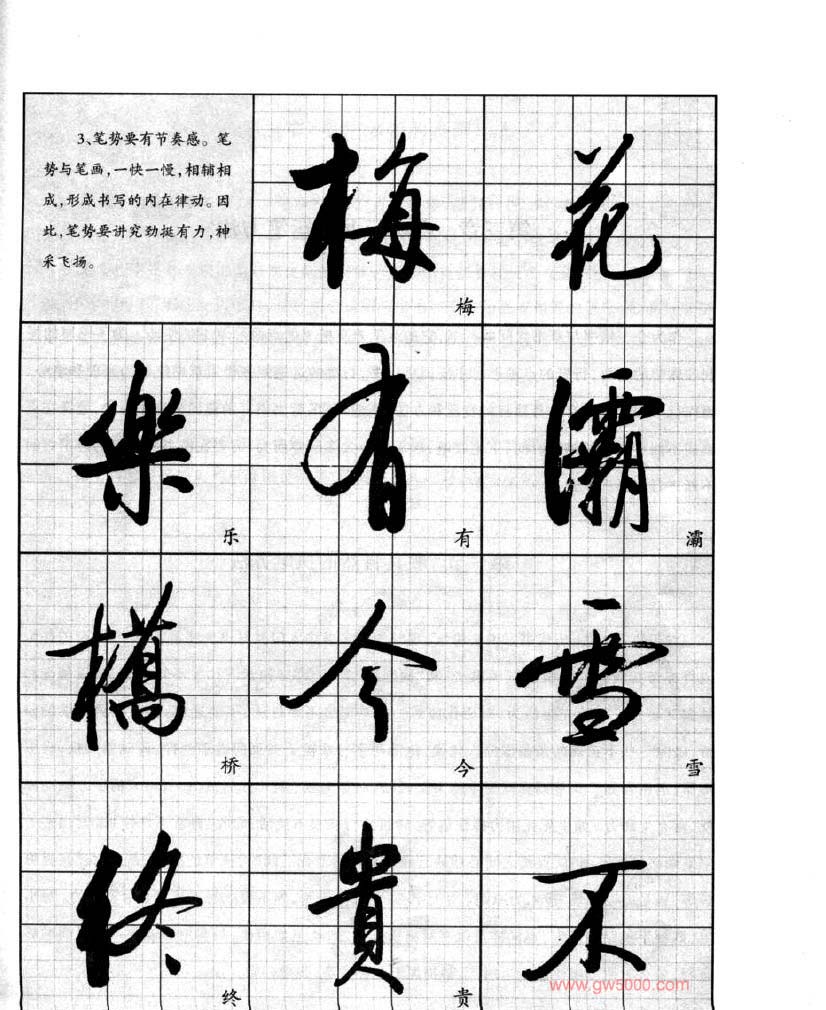 3、笔势要有节奏感。笔
势与笔画,一快一慢,相辅相
成,形成书写的内在律动。因
此,笔势要讲究劲挺有力,神
采飞扬。
梅 花
梅
樂 有 灞
乐 有 灞
橋 今 雪
桥 今 雪
终 貴 不
终 贵
www.gw5000.com